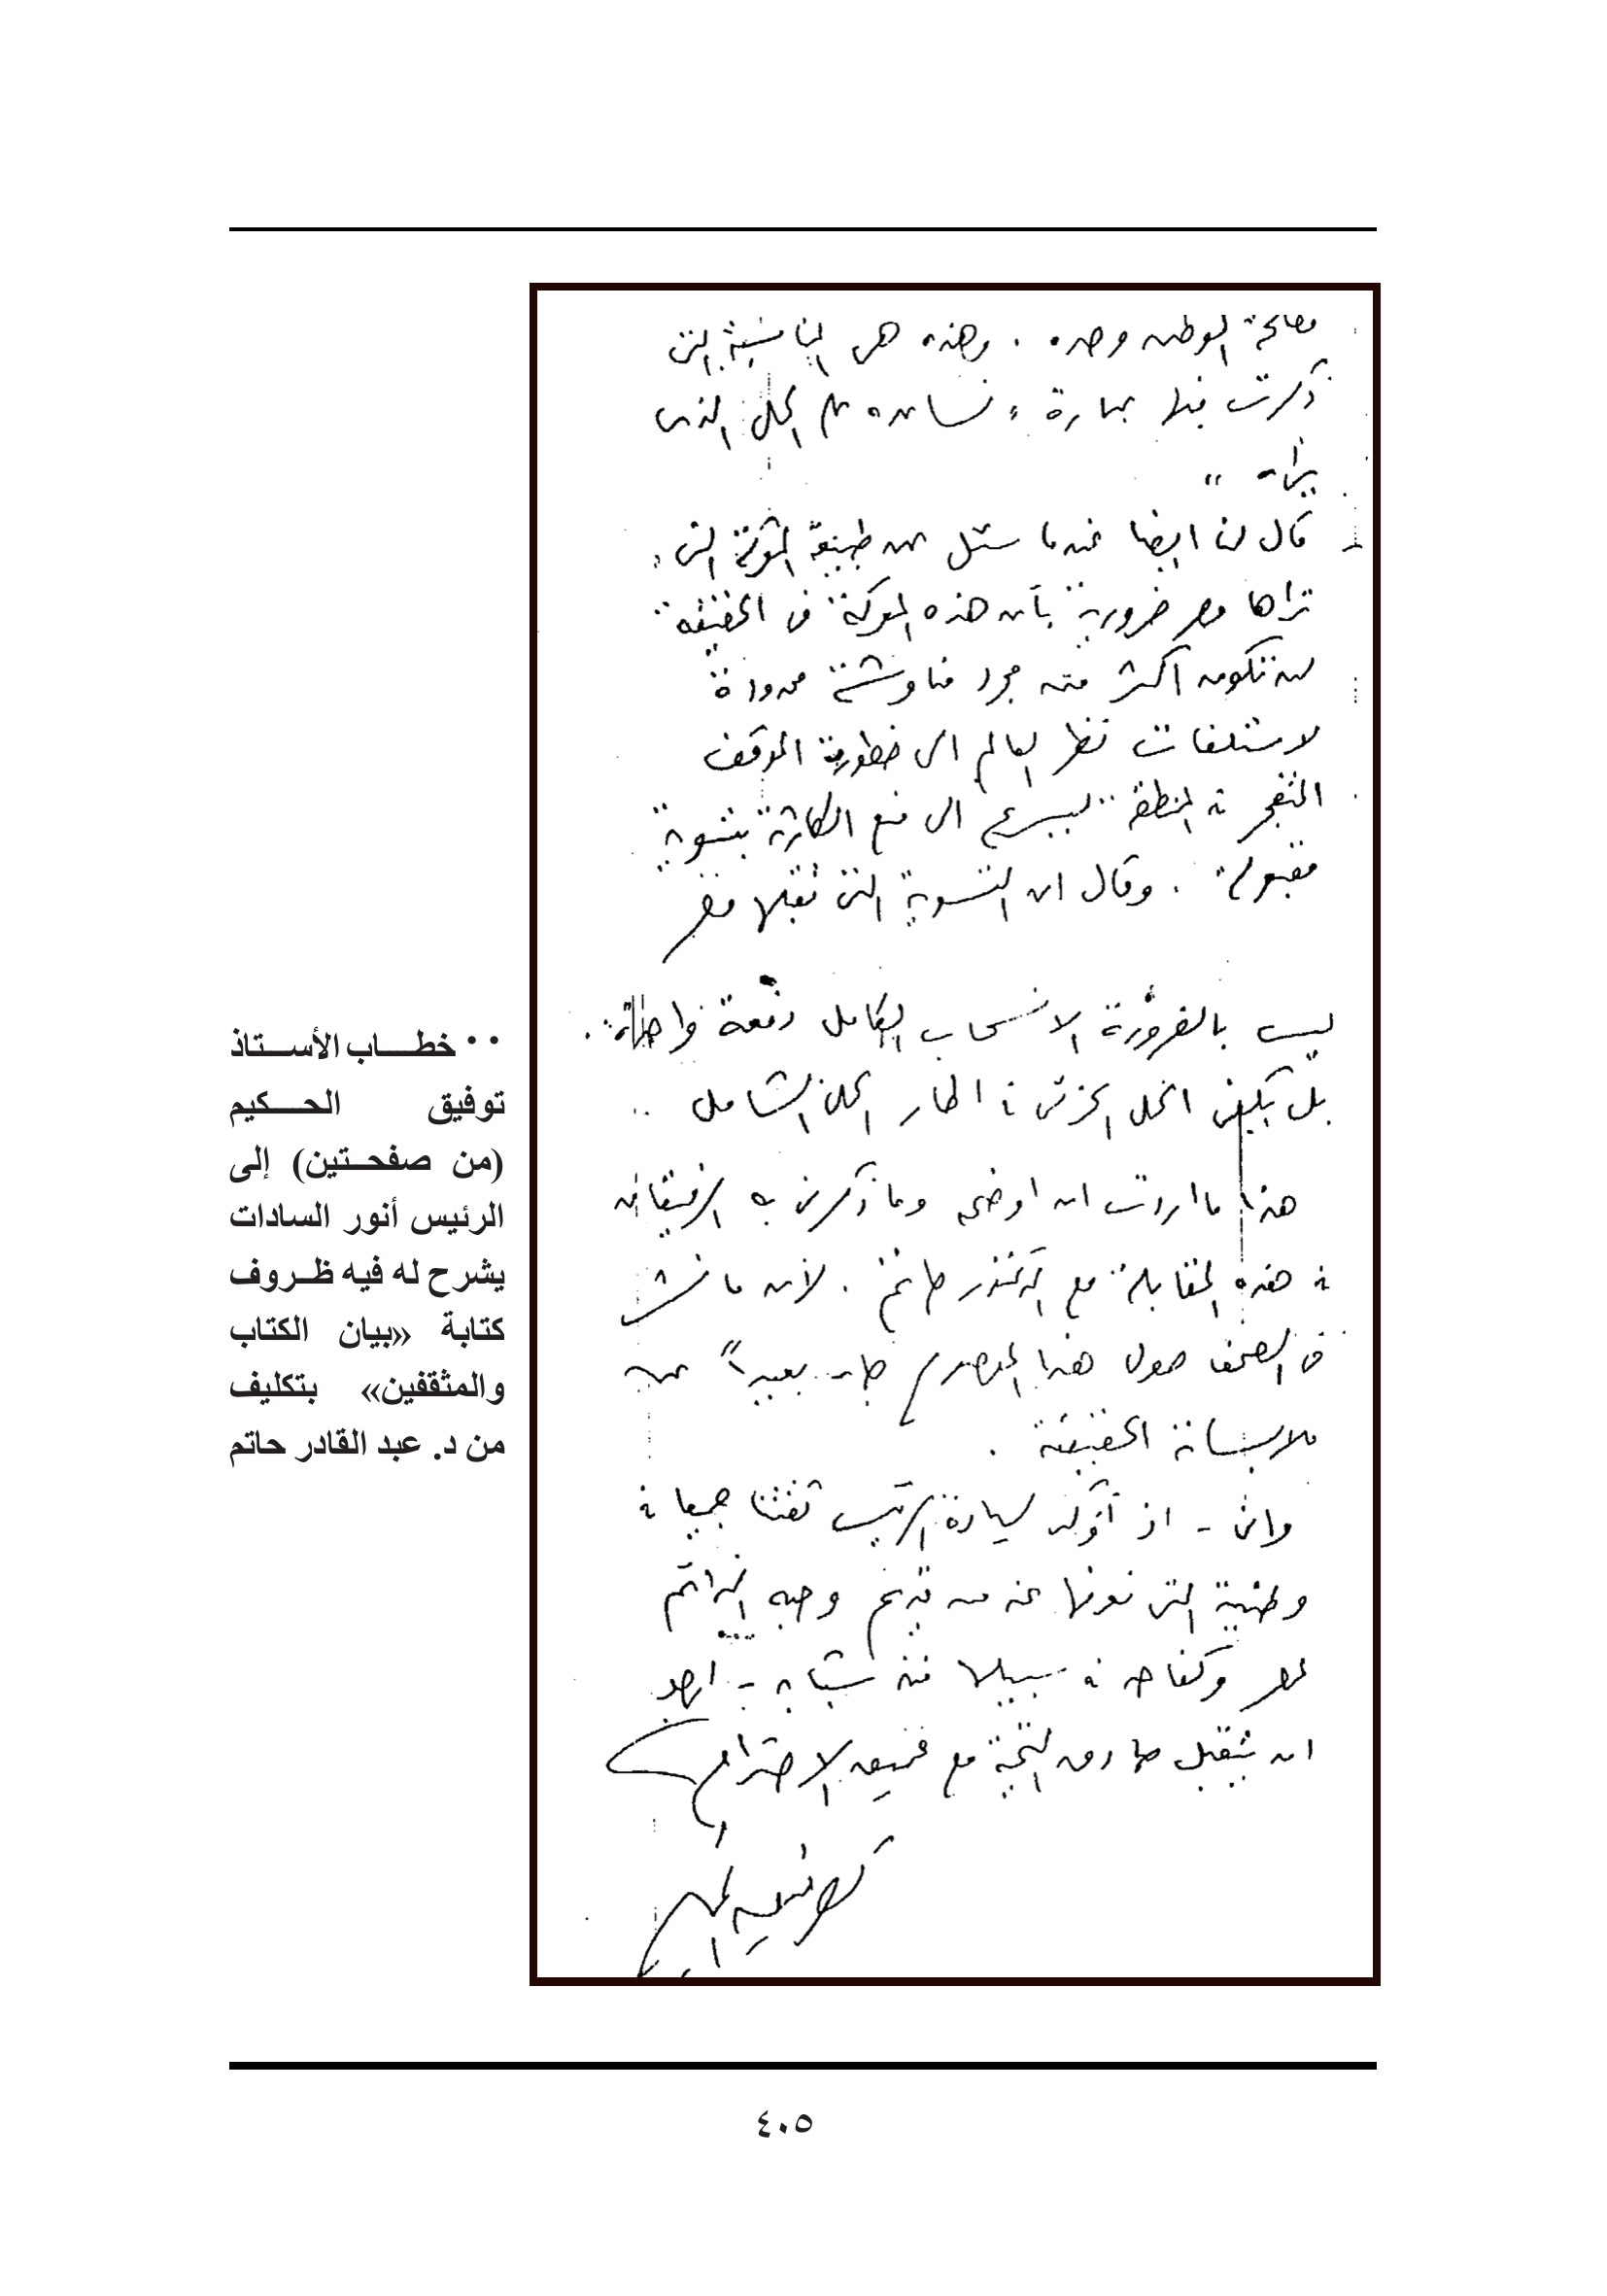 مصلحة الوطن وحده . وهذه هى المناسبة التى
ذكرت فيها عبارة « نسانده على الحل الذى
يراه »
قال لنا ايضا عندما سئل عن طبيعة المعركة التى
تراها مصر ضرورية بأن هذه المعركة فى الحقيقة
لن تكون اكثر من مجرد مناوشة محدودة
لاستلفات نظر العالم الى خطورة الموقف
المتفجر فى المنطقة ليسرع الى منع الكارثة بتسوية
مقبولة . وقال ان التسوية التى تقبلها مصر
ليست بالضرورة الانسحاب الكامل دفعة واحدة .
بل يكفى الحل الجزئى فى اطار الحل الشامل ..
هذا ما اردت ان اوضحه وما ذكرنى به الرفيقان
فى هذه المقابلة مع الدكتور حاتم . لأن ما نشر
فى الصحف حول هذا الموضوع جاء بعيداً عن
ملابساته الحقيقية .
وانى - اذ أؤكد لسيادة الرئيس ثقتنا جميعا فى
وطنيته التى نعرفها عنه من قديم وحبه الدائم
لمصر وكفاحه فى سبيلها منذ شبابه - ارجو
ان يتقبل صادق التحية مع عميق الاحترام
توفيق الحكيم
•• خطاب الأستاذ
توفيق الحكيم
(من صفحتين) إلى
الرئيس أنور السادات
يشرح له فيه ظروف
كتابة «بيان الكتاب
والمثقفين» بتكليف
من د. عبد القادر حاتم
٤٠٥